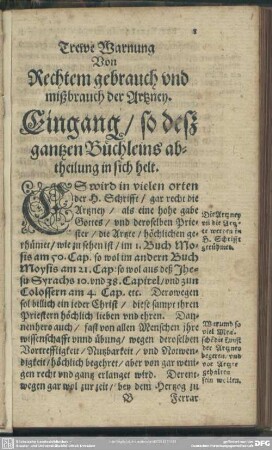 Trewe Warnung
Von
Rechtem gebrauch vnd
mißbrauch der Artzney.
Eingang / so deß
gantzen Büchleins ab-
theilung in sich helt.
ES wird in vielen orten
der H. Schrifft / gar recht die
Artzney / als eine hohe gabe
Gottes / vnd deroselben Prie-
ster / die Artzte / höchlichen ge-
rhümet / wie zu sehen ist / im 1. Buch Mo-
sis am 50. Cap. so wol im andern Buch
Moysis am 21. Cap: so wol aus deß Jhe-
su Syrachs 10. vnd 38. Capitel / vnd zun
Colossern am 4. Cap. etc. Derowegen
sol billich ein jeder Christ / diese sampt jhren
Priestern höchlich lieben vnd ehren. Dan-
nenhero auch / fast von allen Menschen jhre
wissenschafft vnnd übung / wegen deroselben
Vortrefflichkeit / Nutzbarkeit / vnd Notwen-
digkeit / höchlich begehret / aber von gar weni-
gen recht vnd gantz erlanget wird. Derent-
wegen gar wol zur zeit / bey dem Hertzog zu
B Ferrar
Die Artzney
vnd die Artz-
te werden in
H. Schrifft
gerühmet.
Warumb so
viel Men-
sche die Kunst
der Artzney
begeren, vnd
vor Artzte
gehalten
sein wollen.